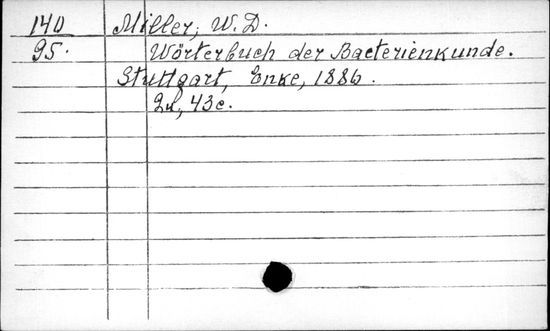 140 Miller, W. D.
95. Wörterbuch der Bacterienkunde.
Stuttgart, Enke, 1886.
2l, 43c.